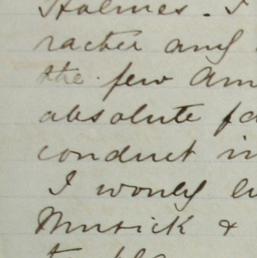 Holmes. I
racter any
the few Am
absolute fa
conduct in
I would li
Musick &